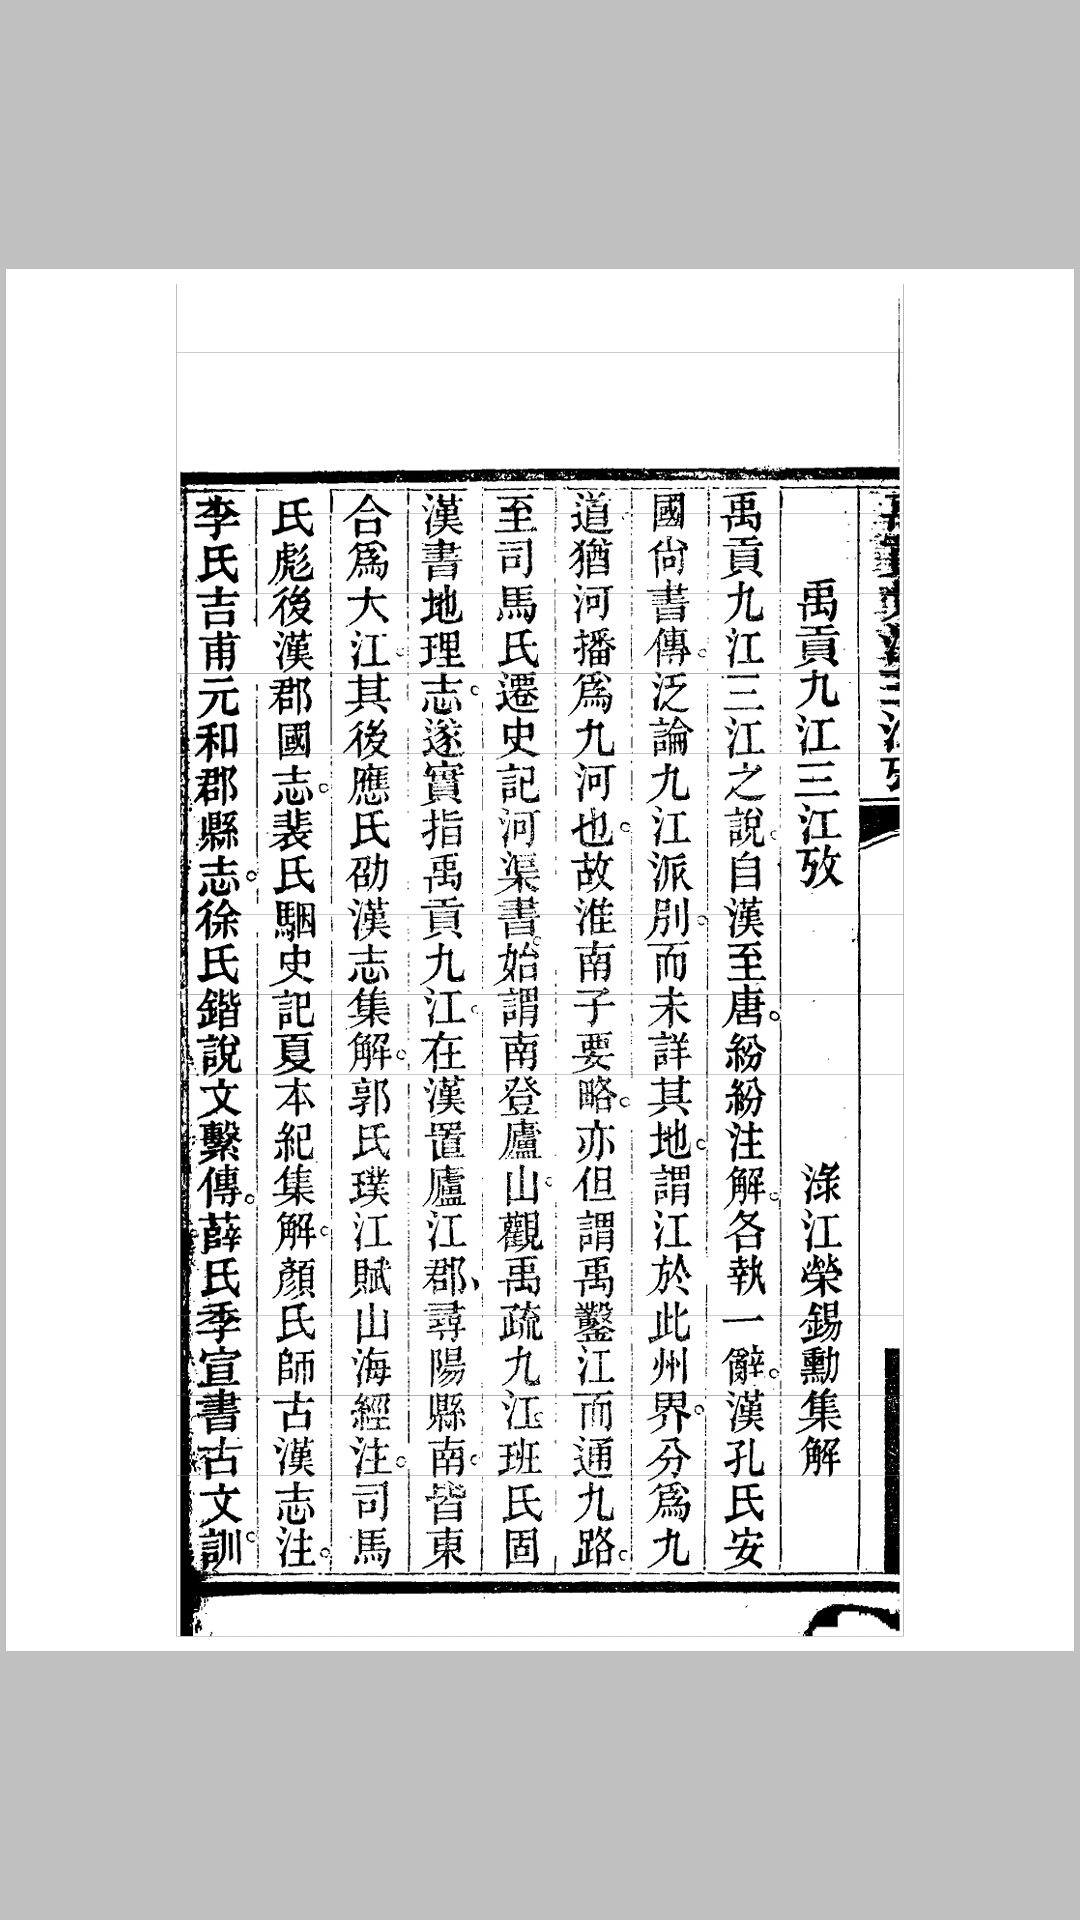 禹貢九江三江攷
淥江榮錫勳集解
禹貢九江三江之說。自漢至唐。紛紛注解。各執一辭。漢孔氏安
國尙書傳。泛論九江派別。而未詳其地。謂江於此州界。分爲九
道猶河播爲九河也。故淮南子要略。亦但謂禹鑿江而通九路。
至司馬氏遷史記河渠書。始謂南登廬山。觀禹疏九江。班氏固
漢書地理志。遂實指禹貢九江。在漢置廬江郡、尋陽縣南。皆東
合爲大江。其後應氏劭漢志集解。郭氏璞江賦山海經注。司馬
氏彪後漢郡國志。裴氏駰史記夏本紀集解。顏氏師古漢志注。
李氏吉甫元和郡縣志。徐氏鍇說文繫傳。薛氏季宣書古文訓。